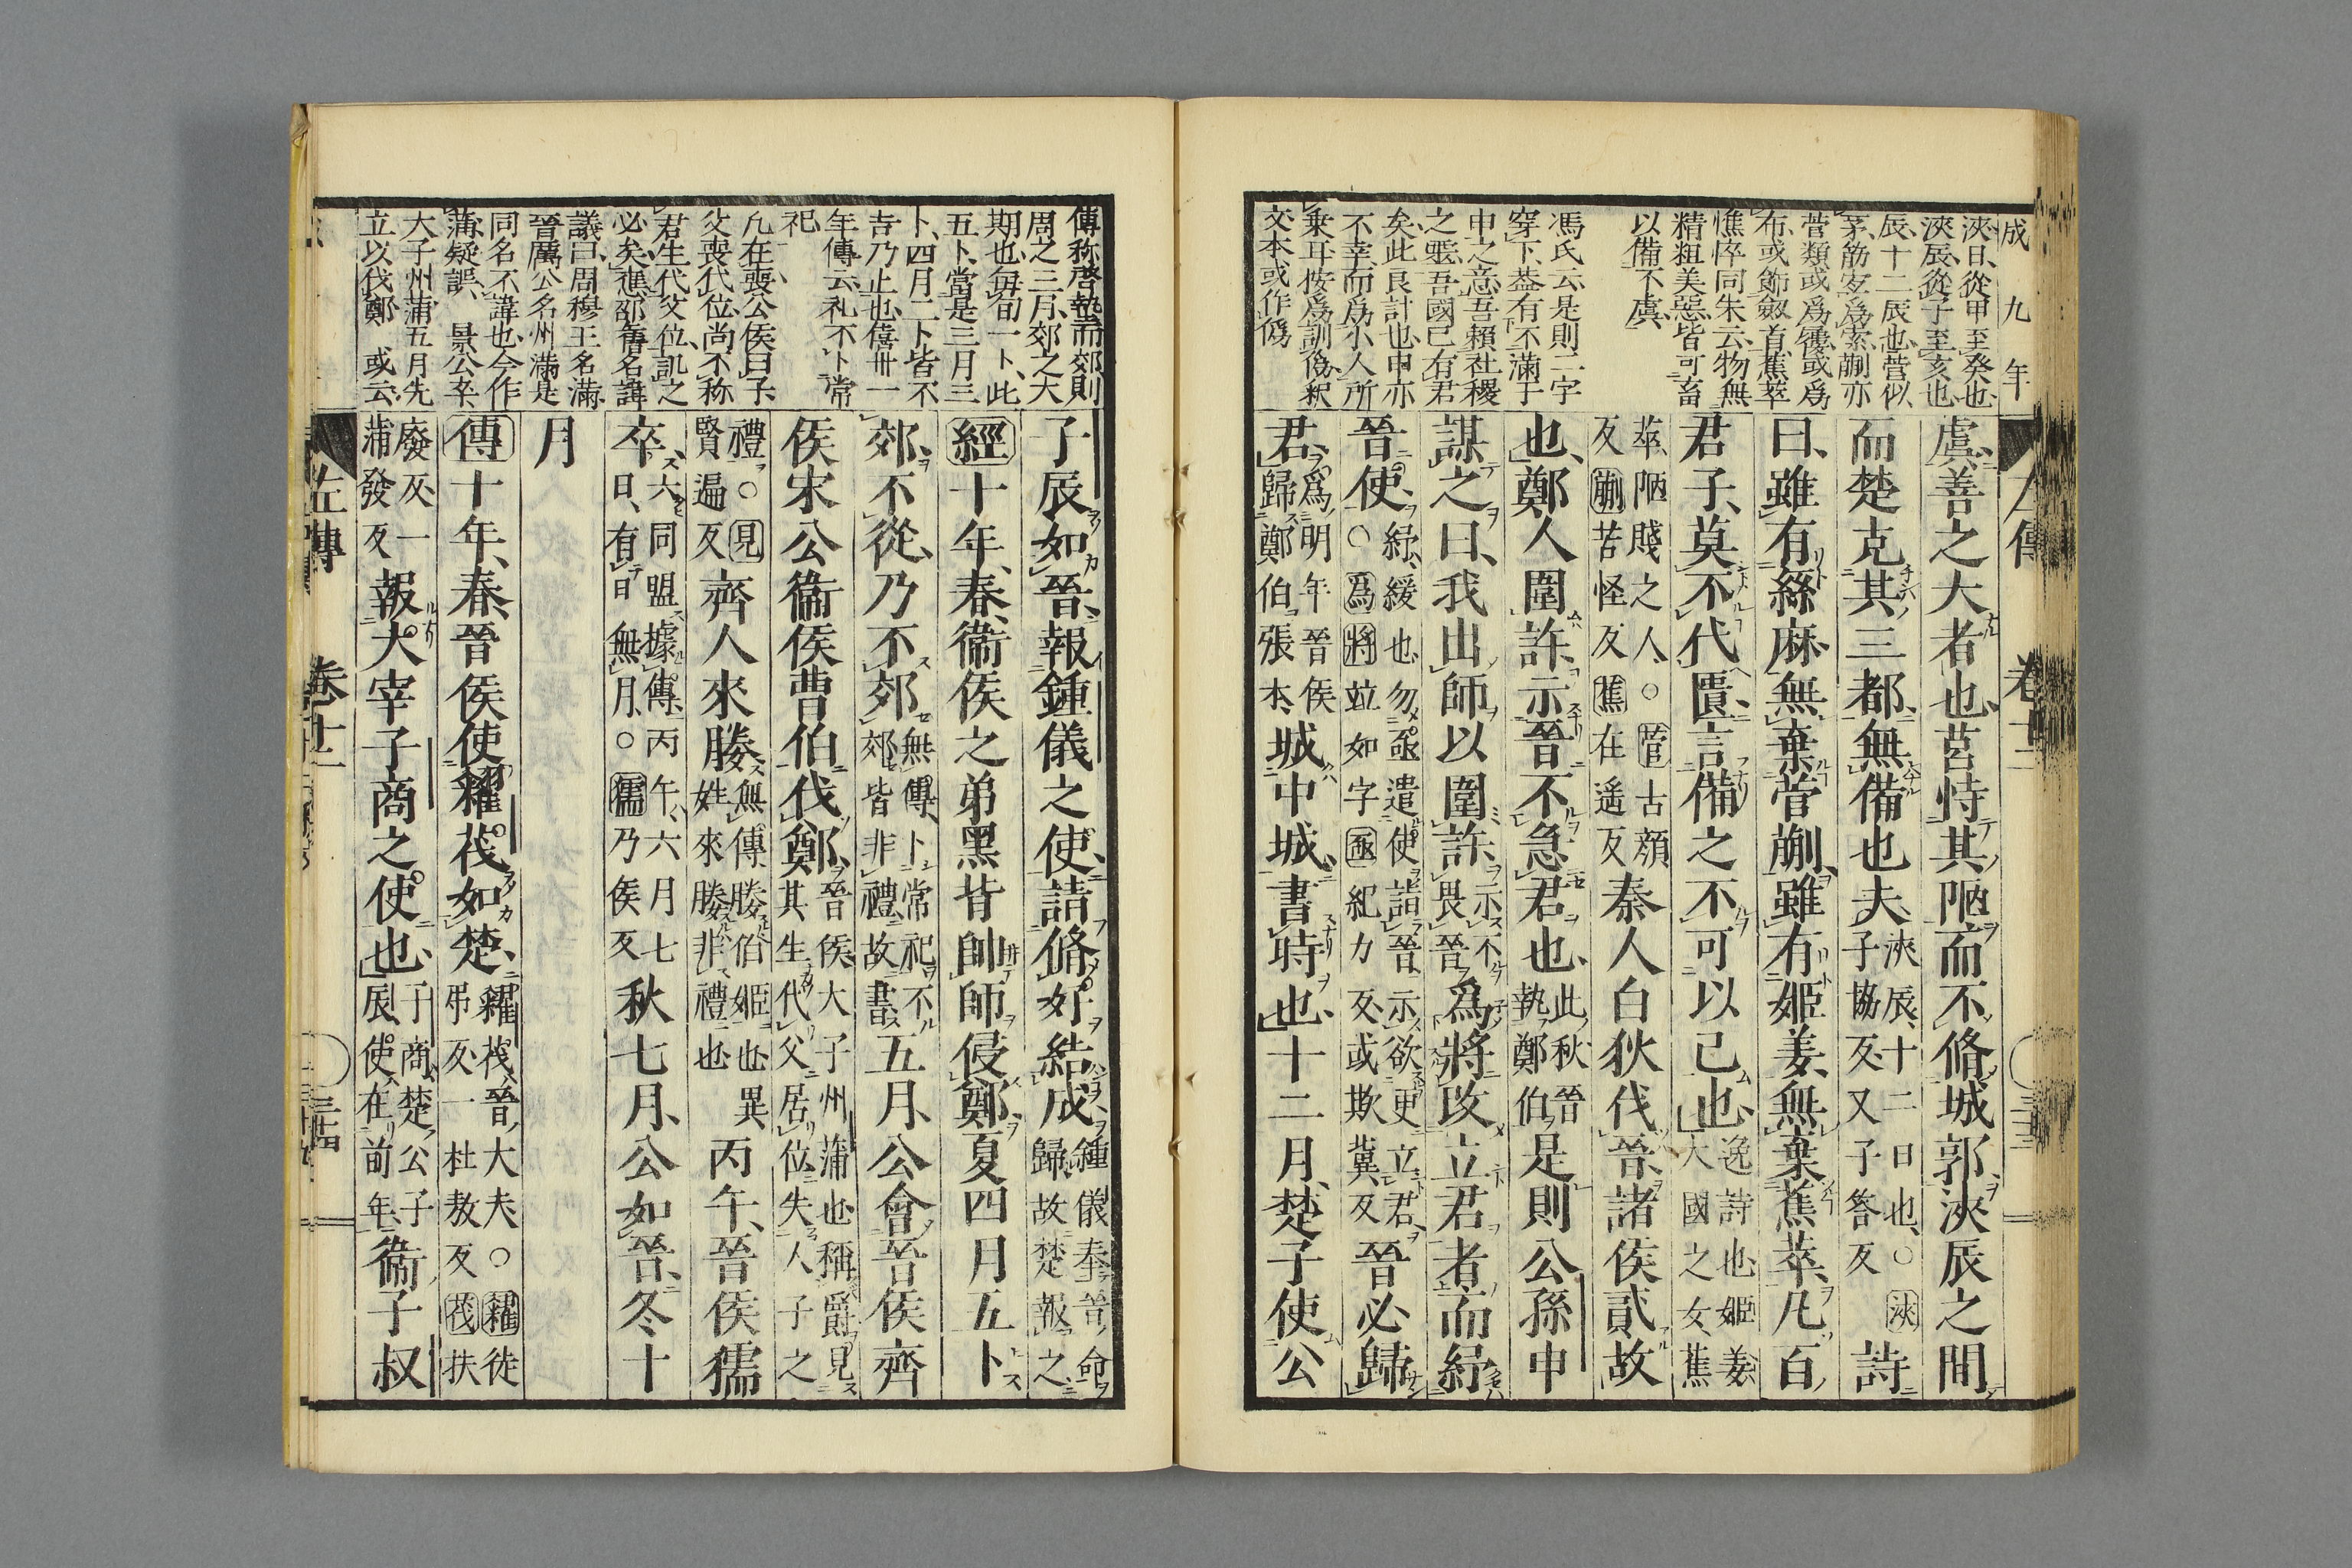 成九年
浹日、從甲至癸也、
浹辰、從子至亥也、
辰、十二辰也、菅似
茅、筋宐爲索、蒯亦
菅類、或爲屨、或爲
布、或飾劔首、蕉萃
憔悴同、朱云、物無
精粗美惡、皆可畜
以備不虞、
馮氏云、是則二字
穿下、葢有不滿于
申之意、吾賴社稷
之靈、吾國已有君
矣、此良計也、申亦
不幸、而爲小人所
乗耳、按爲訓僞、釈
文本或作僞、
虞、善之大者也、莒恃其陋、而不脩城郭、浹辰之間
而楚克其三都、無備也夫浹辰、十二日也、○浹子協反、又子荅反詩
曰、雖有絲麻、無棄菅蒯、雖有姬姜、無棄蕉萃、凡百
君子、莫不代匱、言備之不可以已也、逸詩也、姬姜、大國之女、蕉
萃、陋賤之人、○菅古顔反蒯苦怪反蕉在遙反秦人白狄伐晉、諸侯貳故
也、鄭人圍許、示晉不急君也、此秋晉執鄭伯是則公孫申
謀之曰、我出師以圍許、示不畏晉爲將攺立君者、而紓
晉使、紓、緩也、勿亟遣使詣晉、示欲更立君、○爲將竝如字亟紀力反或欺冀反晉必歸
君、爲明年晉侯歸鄭伯張本、城中城、書時也、十二月、楚子使公
左傳 卷十二
子辰如晉、報鍾儀之使、請脩好結成、鍾儀奉晉命歸、故楚報之、
經十年、春、衞侯之弟黑背帥師侵鄭、夏四月五卜
郊、不從、乃不郊、無傳、卜常祀、不郊皆非禮、故書五月、公會晉侯齊
侯宋公衞侯曹伯伐鄭、晉侯大子州蒲也、稱爵、見其生代父居位、失人子之
禮、○見賢遍反齊人來媵、無傳、媵伯姬也、異姓來媵、非禮也丙午、晉侯獳
卒、六同盟、據傳、丙午、六月七日、有日無月、○獳乃侯反秋七月、公如晉、冬十
月
傳十年、春、晉侯使糴茷如楚、糴茷、晉大夫、○糴徒弔反、一杜敖反茷扶
廢反、一蒲發反報大宰子商之使也、子商、楚公子辰、使在前年、衞子叔
傳称啓蟄而郊則
周之三月、郊之大
期也、毎旬一卜、此
五卜、當是三月三
卜、四月二卜、皆不
吉、乃止也、僖卅一
年傳云、礼不卜常
祀
凢在喪、公侯曰子
父喪代位、尚不称
君、生代父位、訊之
必矣、應邵舊名諱
議曰、周穆王名滿
晉厲公名州滿、是
同名不諱也、今作
蒲、疑誤、 景公卒
大子州蒲五月先
立以伐鄭、 或云
左傳 卷十二